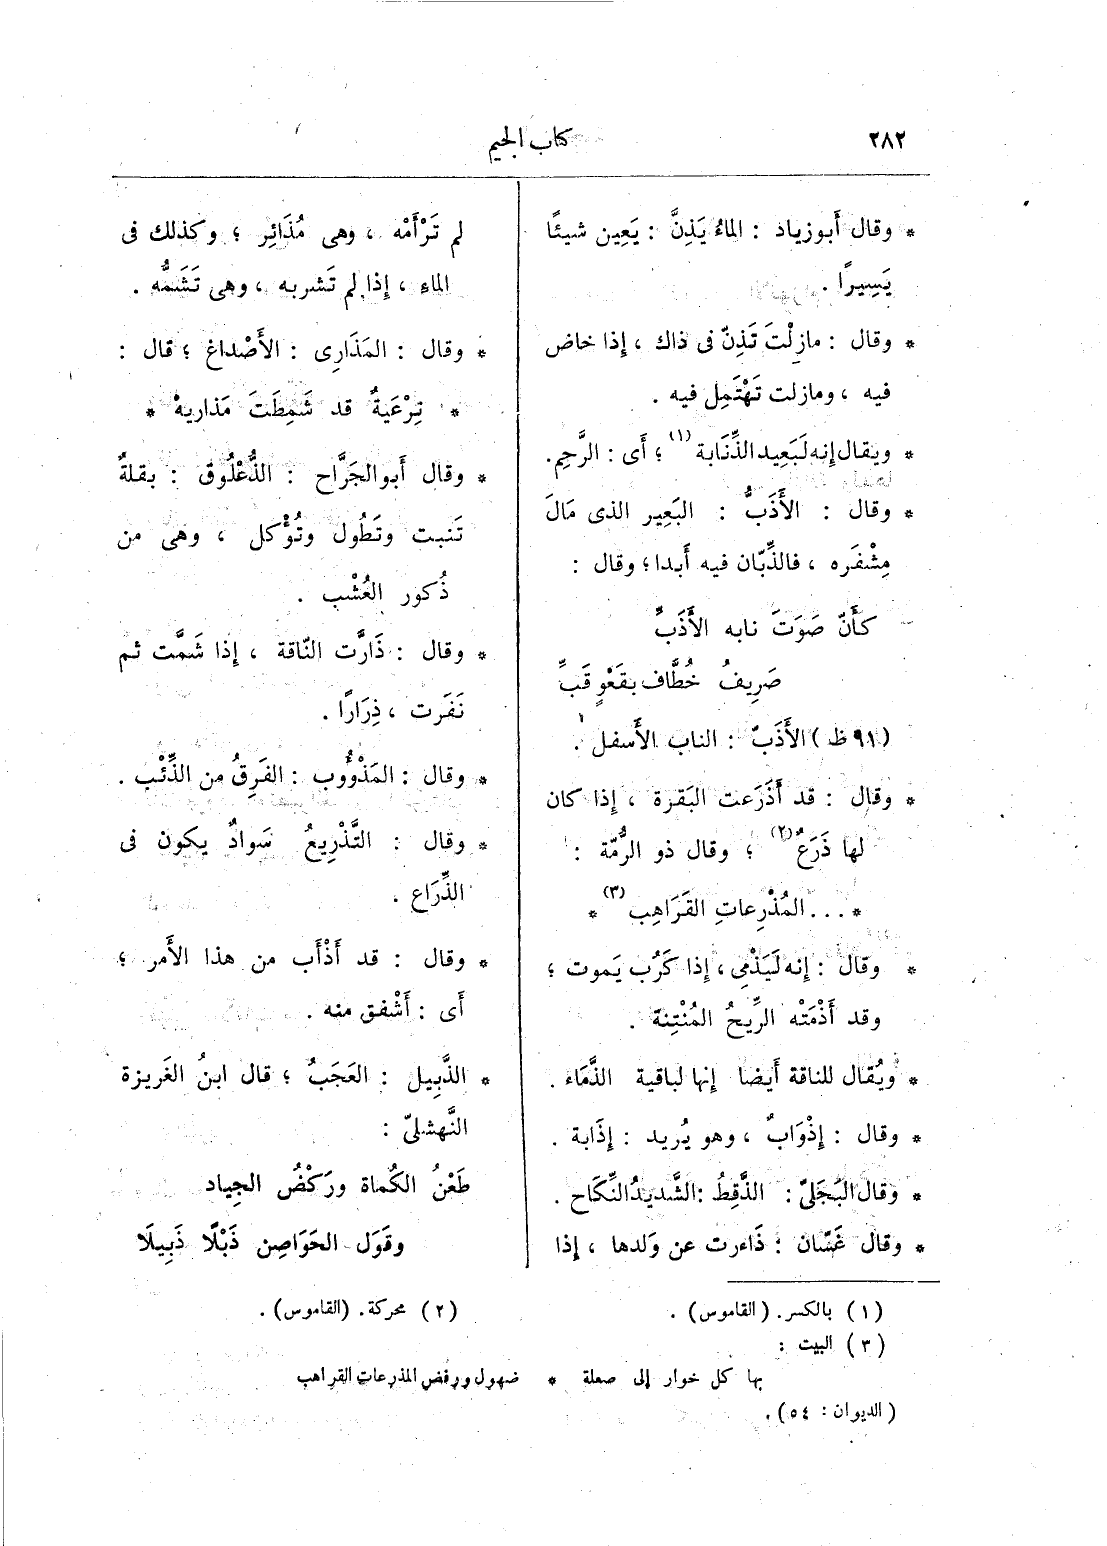 ٢٨٢
كتاب الجيم
* وقال أَبوزياد : الماءُ يَذِنَّ : يَعِين شيئًا
يَسِيرًا .
* وقال : مازلْتَ تَذِنّ فى ذاك ، إذا خاض
فيه ، ومازلت تَهْتَمِل فيه .
* ويقال إنه لَبَعِيد الذِّنَابة (١) ؛ أَى : الرَّحِم .
* وقال : الأَذَبُّ : البَعِير الذى مَالَ
مِشْفَره ، فالذِّبّان فيه أَبدا ؛ وقال :
كأَنّ صَوَتَ نابه الأَذَبِّ
صَرِيفُ خُطَّاف بقَعْوٍ قَبِّ
(٩١ ظ) الأَذَبّ : الناب الأَسفل .
* وقال : قد أَذَرَعت البَقرة ، إذا كان
لها ذَرَعٌ (٢) ؛ وقال ذو الرمّة :
* ... المُذْرِعاتِ القَرَاهِب (٣) *
* وقال : إنه لَيَذْمِى ، إذا كَرُب يَموت ؛
وقد أَذْمَتْه الرِّيحُ المُنْتِنة .
* ويُقال للناقة أَيضا إنها لباقية الذَّمَاء .
* وقال : إذْوَابٌ ، وهو يُريد : إذَابة .
* وقال البُجَلىّ : الذَّقِطُ : الشَّديدُ النِّكَاح .
* وقال غَسّان : ذَاءرت عن وَلدها ، إذا
لم تَرْأَمْه ، وهى مُذَائِر ؛ وكذلك فى
الماء ، إذا لم تَشربه ، وهى تَشَمُّه .
* وقال : المَذَارِى : الأَصْداغ ؛ قال :
* تِرْعَيةٌ قد شَمِطَتَ مَذاريهْ *
* وقال أَبو الجَرَّاح : الذُّعْلُوق : بقلةٌ
تَنبت وتَطُول وتُؤْكل ، وهى من
ذُكور العُشْب .
* وقال : ذَارَّت النّاقة ، إذا شَمَّت ثم
نَفَرت ، ذِرَارًا .
* وقال : المَذْؤُوب : الفَرِقُ من الذِّئْب .
* وقال : التَّذْرِيعُ سَوادٌ يكون فى
الذِّرَاع .
* وقال : قد أَذْأَب من هذا الأَمر ؛
أَى : أَشْفق منه .
* الذَّبِيل : العَجَبُ ؛ قال ابنُ الغَريزة
النَّهشلىّ :
طَعْنُ الكُماة ورَكْضُ الجِياد
وقَوَل الحَوَاصِن ذَبْلًا ذَبِيلَا
(١) بالكسر. (القاموس) .
(٢) محركة. (القاموس) .
(٣) البيت :
بها كل خوار إلى صعلة * ضهول ورفض المذرعات القراهب
(الديوان : ٥٤) .